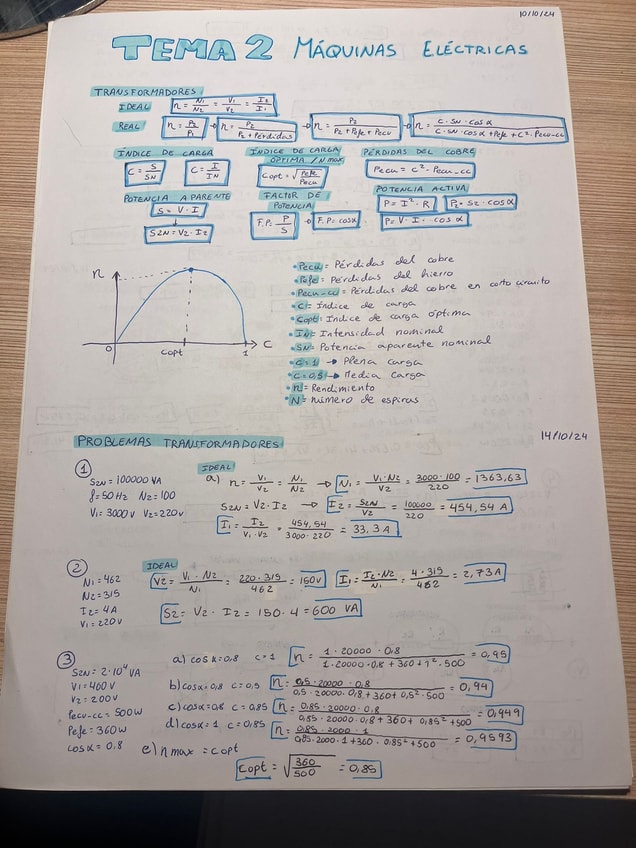 10/10/24
TEMA 2 MÁQUINAS ELÉCTRICAS
TRANSFORMADORES
IDEAL n = N1/N2 = V1/V2 = I2/I1
REAL n = P2/P1 → n = P2/(P2 + Pérdidas) → n = P2/(P2 + Pefe + Pecu) → n = C · SN · cos α/(C · SN · cos α + Pefe + C² · Pecu-cc)
ÍNDICE DE CARGA ÍNDICE DE CARGA ÓPTIMA / N max PÉRDIDAS DEL COBRE
C = S/SN C = I/IN Copt = √(Pefe/Pecu) Pecu = C² · Pecu-cc
POTENCIA APARENTE FACTOR DE POTENCIA POTENCIA ACTIVA
S = V · I F.P. = P/S → F.P. = cos α P = I² · R P2 = S2 · cos α
S2N = V2 · I2 P = V · I · cos α
n
0 Copt 1 C
• Pecu = Pérdidas del cobre
• Pefe = Pérdidas del hierro
• Pecu-cc = Pérdidas del cobre en corto circuito
• C = Índice de carga
• Copt = Índice de carga óptima
• IN = Intensidad nominal
• SN = Potencia aparente nominal
• C = 1 → Plena carga
• C = 0,5 → Media carga
• n = Rendimiento
• N = número de espiras
PROBLEMAS TRANSFORMADORES 14/10/24
1
S2N = 100000 VA
f = 50 Hz N2 = 100
V1 = 3000 V V2 = 220 V
IDEAL
a) n = V1/V2 = N1/N2 → N1 = V1 · N2/V2 = 3000 · 100/220 = 1363,63
S2N = V2 · I2 → I2 = S2N/V2 = 100000/220 = 454,54 A
I1 = I2/V1 · V2 = 454,54/3000 · 220 = 33,3 A
2
N1 = 462
N2 = 315
I2 = 4A
V1 = 220 V
IDEAL
V2 = V1 · N2/N1 = 220 · 315/462 = 150 V I1 = I2 · N2/N1 = 4 · 315/462 = 2,73 A
S2 = V2 · I2 = 150 · 4 = 600 VA
3
S2N = 2 · 10⁴ VA
V1 = 400 V
V2 = 200 V
Pecu-cc = 500 W
Pefe = 360 W
cos α = 0,8
a) cos α = 0,8 C = 1 n = 1 · 20000 · 0,8/1 · 20000 · 0,8 + 360 + 1² · 500 = 0,95
b) cos α = 0,8 C = 0,5 n = 0,5 · 20000 · 0,8/0,5 · 20000 · 0,8 + 360 + 0,5² · 500 = 0,94
c) cos α = 0,8 C = 0,85 n = 0,85 · 20000 · 0,8/0,85 · 20000 · 0,8 + 360 + 0,85² + 500 = 0,949
d) cos α = 1 C = 0,85 n = 0,85 · 2000 · 1/0,85 · 2000 · 1 + 360 · 0,85² + 500 = 0,9593
e) n max = Copt
Copt = √(360/500) = 0,85